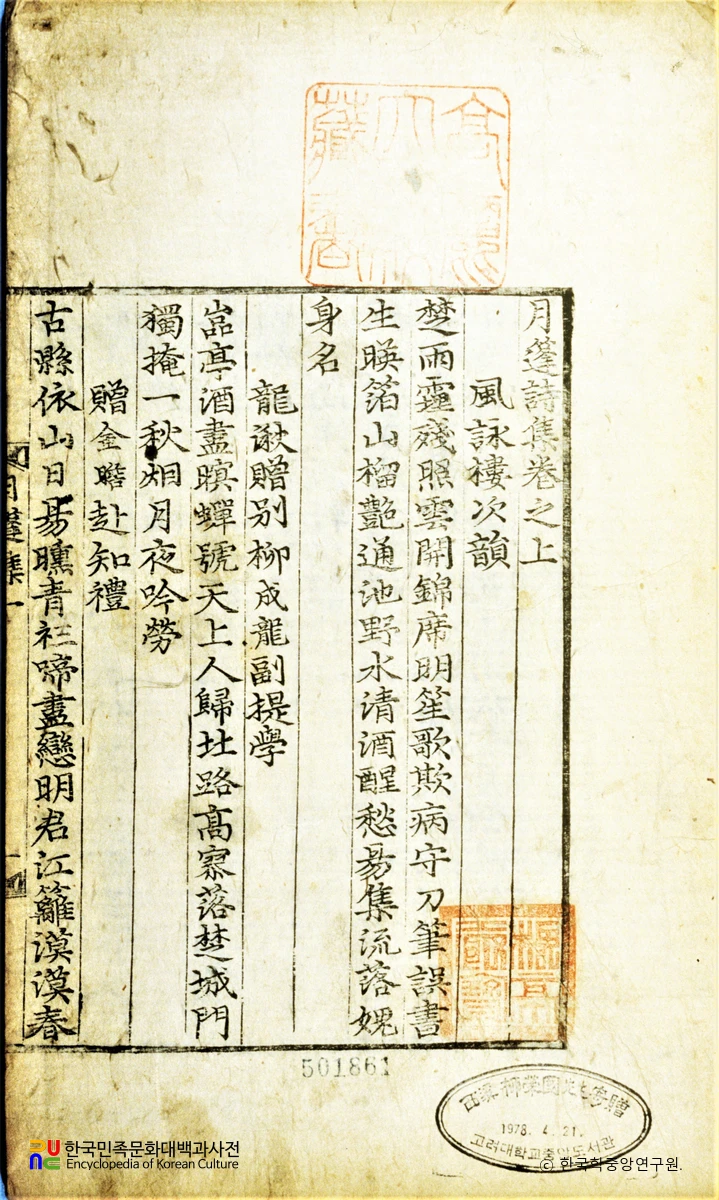 月蓬詩集卷之上
風詠樓次韻
楚雨霾殘照雲開錦席明笙歌欺病守刀筆誤書
生暎箔山榴艶通池野水清酒醒愁易集流落媿
身名
龍湫贈別柳成龍副提學
嵓亭酒盡暝蟬號天上人歸北路高寥落楚城門
獨掩一秋烟月夜吟勞
贈金瞻赴知禮
古縣依山日易曛青衫啼盡戀明君江蘺漠漠春
月蓬集一
501861
1978. 4. 21.
고려대학교중앙도서관
한국민족문화대백과사전
Encyclopedia of Korean Culture
© 한국학중앙연구원.